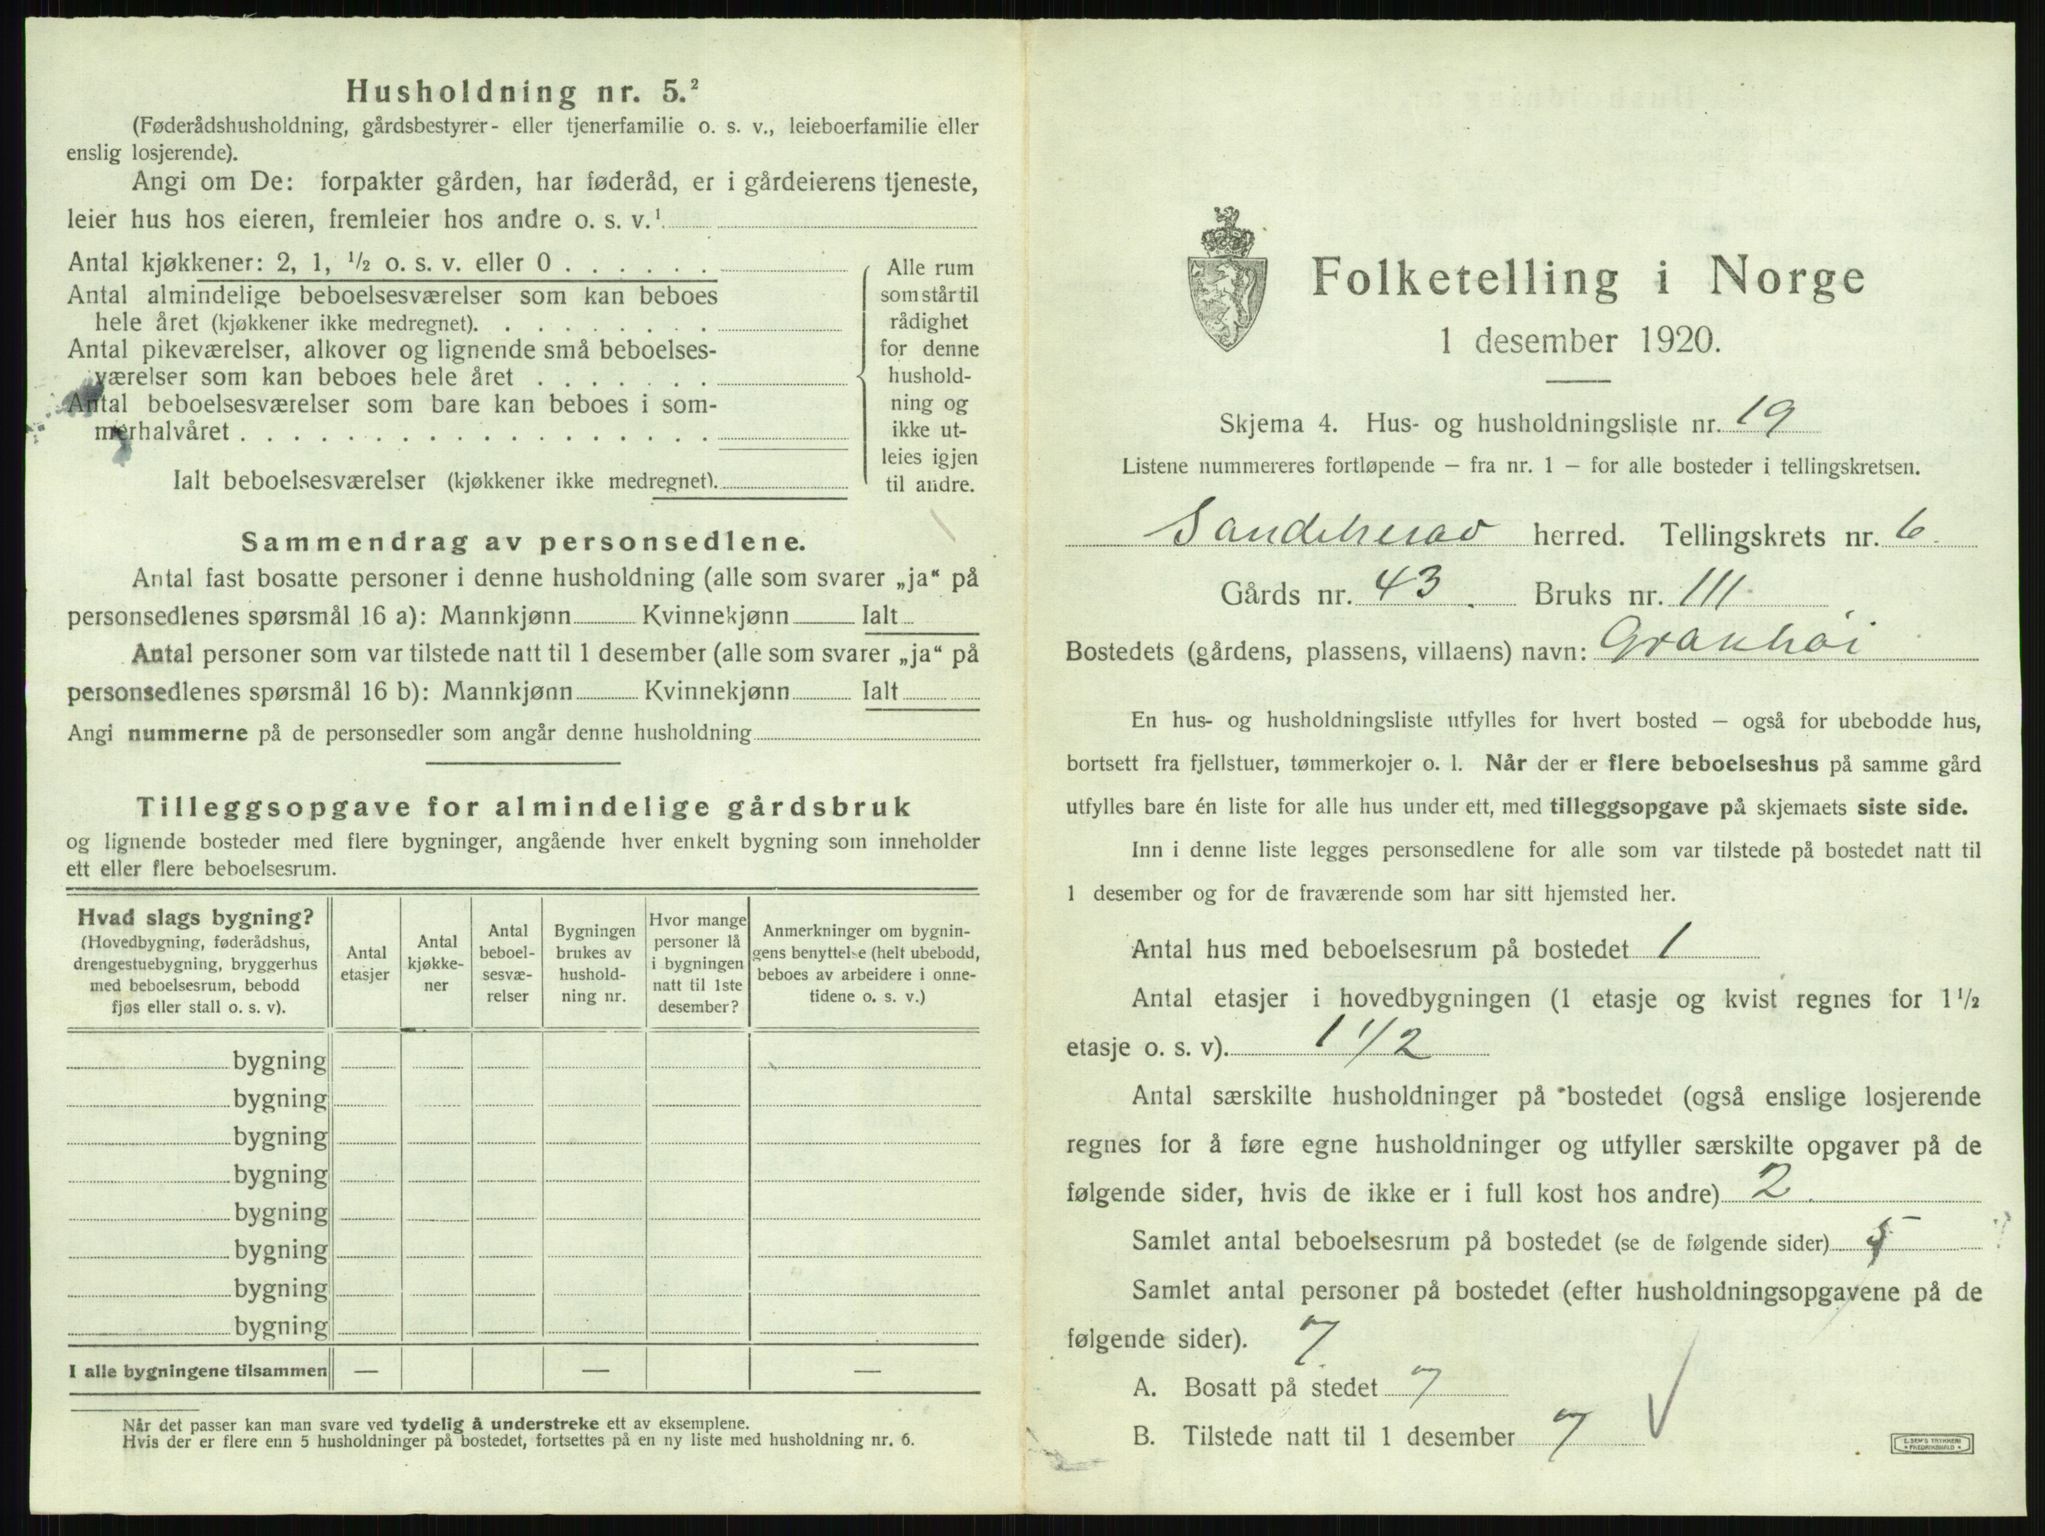 Husholdning nr. 5.²
(Føderådshusholdning, gårdsbestyrer- eller tjenerfamilie o. s. v., leieboerfamilie eller
enslig losjerende).
Angi om De: forpakter gården, har føderåd, er i gårdeierens tjeneste,
leier hus hos eieren, fremleier hos andre o. s. v.¹
Antal kjøkkener: 2, 1, ½ o. s. v. eller 0 . . . . . .
Antal almindelige beboelsesværelser som kan beboes
hele året (kjøkkener ikke medregnet). . . . . . . . .
Antal pikeværelser, alkover og lignende små beboelses-
værelser som kan beboes hele året . . . . . . .
Antal beboelsesværelser som bare kan beboes i som-
merhalvåret . . . . . . . . . . . . . . . . . .
Ialt beboelsesværelser (kjøkkener ikke medregnet).
Alle rum
som står til
rådighet
for denne
hushold-
ning og
ikke ut-
leies igjen
til andre.
Sammendrag av personsedlene.
Antal fast bosatte personer i denne husholdning (alle som svarer „ja“ på
personsedlenes spørsmål 16 a): Mannkjønn Kvinnekjønn Ialt
Antal personer som var tilstede natt til 1 desember (alle som svarer „ja“ på
personsedlenes spørsmål 16 b): Mannkjønn Kvinnekjønn Ialt
Angi nummerne på de personsedler som angår denne husholdning
Tilleggsopgave for almindelige gårdsbruk
og lignende bosteder med flere bygninger, angående hver enkelt bygning som inneholder
ett eller flere beboelsesrum.
Hvad slags bygning?
(Hovedbygning, føderådshus,
drengestuebygning, bryggerhus
med beboelsesrum, bebodd
fjøs eller stall o. s. v).
Antal
etasjer
Antal
kjøkke-
ner
Antal
beboel-
sesvæ-
relser
Bygningen
brukes av
hushold-
ning nr.
Hvor mange
personer lå
i bygningen
natt til 1ste
desember?
Anmerkninger om bygnin-
gens benyttelse (helt ubebodd,
beboes av arbeidere i onne-
tidene o. s. v.)
bygning
bygning
bygning
bygning
bygning
bygning
bygning
bygning
I alle bygningene tilsammen — — —
Når det passer kan man svare ved tydelig å understreke ett av eksemplene.
Hvis der er flere enn 5 husholdninger på bostedet, fortsettes på en ny liste med husholdning nr. 6.
Folketelling i Norge
1 desember 1920.
Skjema 4. Hus- og husholdningsliste nr. 19
Listene nummereres fortløpende – fra nr. 1 – for alle bosteder i tellingskretsen.
Sandeherad herred. Tellingskrets nr. 6
Gårds nr. 43. Bruks nr. 111
Bostedets (gårdens, plassens, villaens) navn: Granhøi
En hus- og husholdningsliste utfylles for hvert bosted – også for ubebodde hus,
bortsett fra fjellstuer, tømmerkojer o. l. Når der er flere beboelseshus på samme gård
utfylles bare én liste for alle hus under ett, med tilleggsopgave på skjemaets siste side.
Inn i denne liste legges personsedlene for alle som var tilstede på bostedet natt til
1 desember og for de fraværende som har sitt hjemsted her.
Antal hus med beboelsesrum på bostedet 1
Antal etasjer i hovedbygningen (1 etasje og kvist regnes for 1½
etasje o. s. v). 1 1/2
Antal særskilte husholdninger på bostedet (også enslige losjerende
regnes for å føre egne husholdninger og utfyller særskilte opgaver på de
følgende sider, hvis de ikke er i full kost hos andre) 2
Samlet antal beboelsesrum på bostedet (se de følgende sider) 5
Samlet antal personer på bostedet (efter husholdningsopgavene på de
følgende sider). 7
A. Bosatt på stedet 7
B. Tilstede natt til 1 desember 7
E. SEM'S TRYKKERI
FREDRIKSHALD